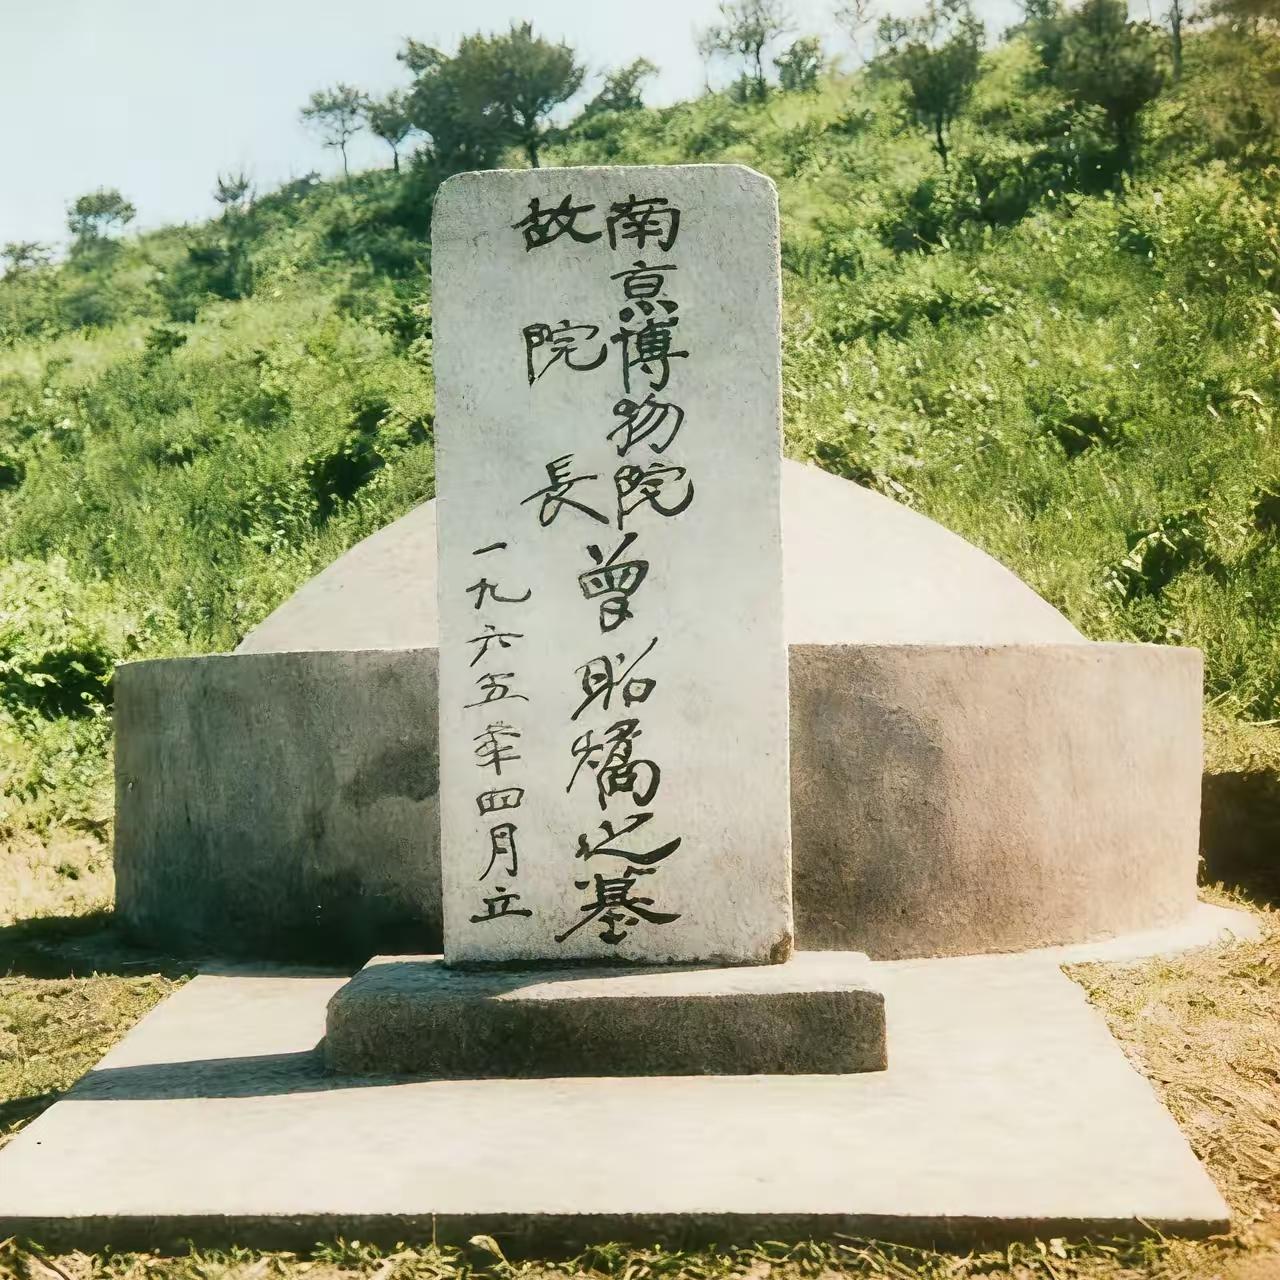 南京博物院曾昭燏之墓
故院長
一九六五年四月立